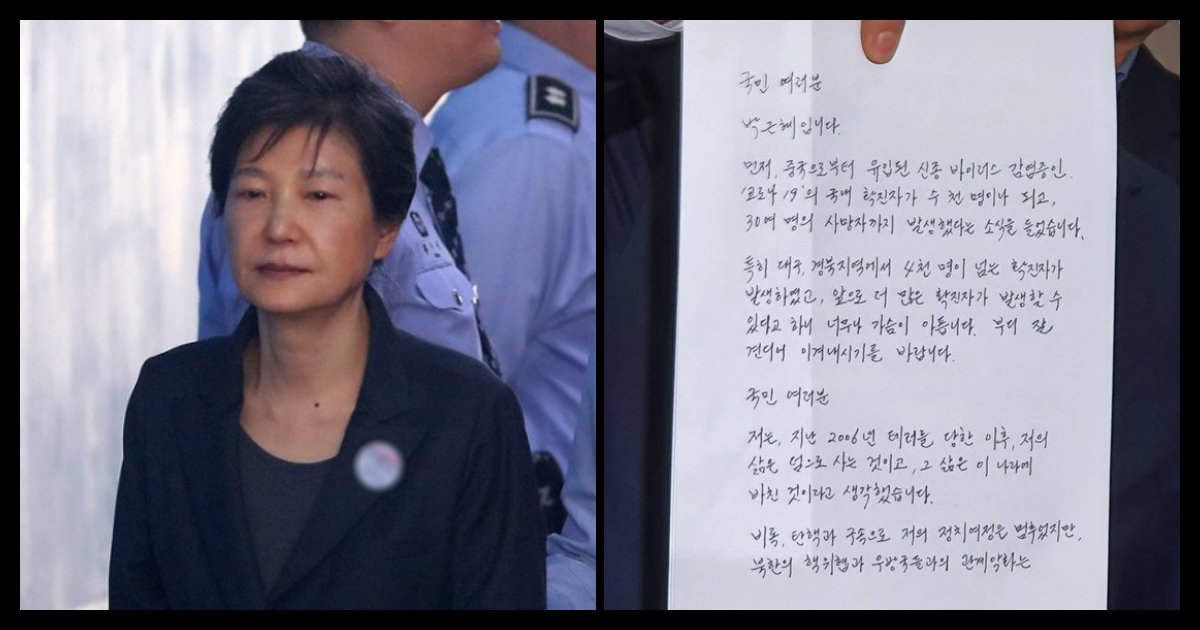 국민 여러분
박근혜입니다.
먼저, 중국으로부터 유입된 신종 바이러스 감염증인
'코로나 19'의 국내 확진자가 수 천 명이나 되고,
30여 명의 사망자까지 발생했다는 소식을 들었습니다.
특히 대구, 경북지역에서 4천 명이 넘는 확진자가
발생하였고, 앞으로 더 많은 확진자가 발생할 수
있다고 하니 너무나 가슴이 아픕니다. 부디 잘
견디어 이겨내시기를 바랍니다.
국민 여러분
저는, 지난 2006년 테러를 당한 이후, 저의
삶은 덤으로 사는 것이고, 그 삶은 이 나라에
바친 것이라고 생각했습니다.
비록, 탄핵과 구속으로 저의 정치여정은 멈추었지만,
북한의 핵위협과 우방국들과의 관계악화는